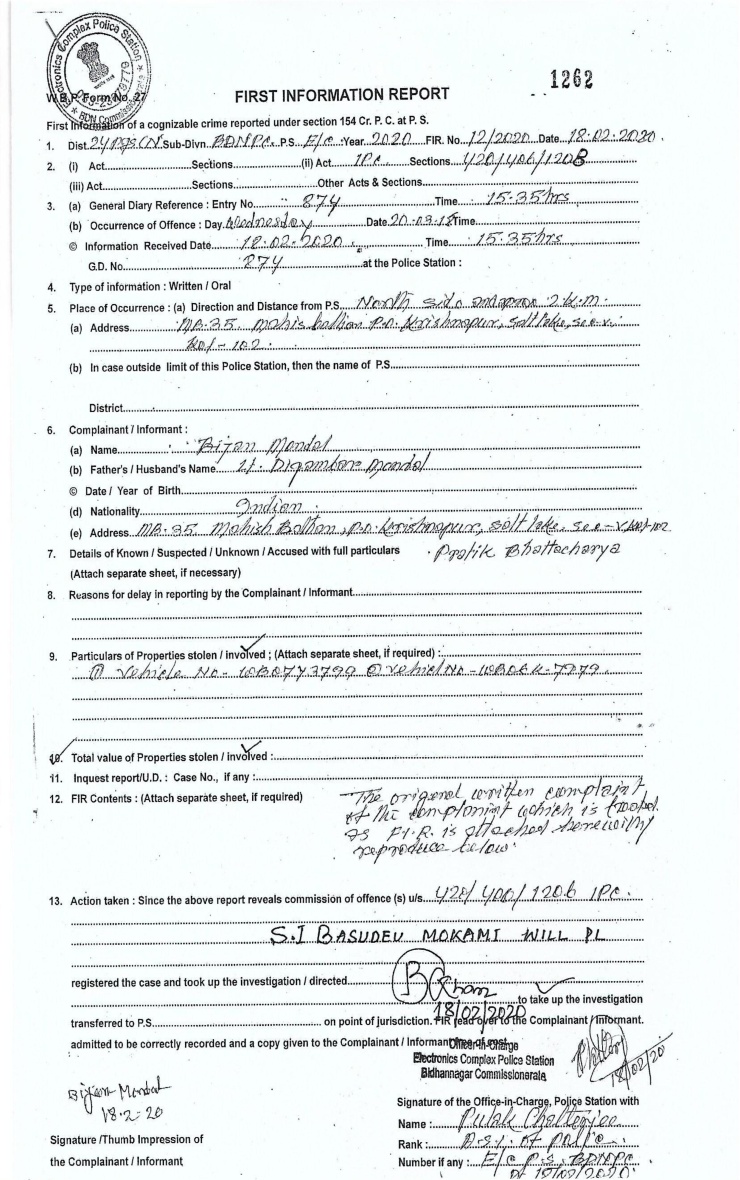 Electronics Complex Police Station
033-23678779
BDN Commissionerate
1262
W.B.P. Form No. 27
FIRST INFORMATION REPORT
First Information of a cognizable crime reported under section 154 Cr. P. C. at P. S.
1. Dist. 24 PGS (N) Sub-Divn. BDNPC. P.S. E/C Year 2020 FIR. No. 12/2020 Date 18.02.2020.
2. (i) Act Sections (ii) Act IPC Sections 420/406/120B
(iii) Act Sections Other Acts & Sections
3. (a) General Diary Reference : Entry No. 874 Time 15.35 hrs
(b) Occurrence of Offence : Day Wednesday Date 20.03.18 Time
© Information Received Date 18.02.2020 Time 15.35 hrs
G.D. No. 874 at the Police Station :
4. Type of information : Written / Oral
5. Place of Occurrence : (a) Direction and Distance from P.S. North side 2 k.m.
(a) Address MB-35 P.O. Krishnapur, Salt lake, Sec-V.
Kol-102.
(b) In case outside limit of this Police Station, then the name of P.S.
District
6. Complainant / Informant :
(a) Name Bijan Mondal
(b) Father's / Husband's Name Lt. Digambar Mondal
© Date / Year of Birth
(d) Nationality Indian
(e) Address MB-35 Mahish Bathan, P.O. Krishnapur, Salt lake, Sec-V, Kol-102
7. Details of Known / Suspected / Unknown / Accused with full particulars Pratik Bhattacharya
(Attach separate sheet, if necessary)
8. Reasons for delay in reporting by the Complainant / Informant
9. Particulars of Properties stolen / involved ; (Attach separate sheet, if required) :
① Vehicle No - ② Vehicle No -
10. Total value of Properties stolen / involved :
11. Inquest report/U.D. : Case No., if any :
12. FIR Contents : (Attach separate sheet, if required) The original written complaint
of the complonint which is treated
as F.I.R. is attached herewith/
reproduce below.
13. Action taken : Since the above report reveals commission of offence (s) u/s. 420/406/120B IPC.
S.I BASUDEV MOKAMI WILL PL
registered the case and took up the investigation / directed
18/02/2020 to take up the investigation
transferred to P.S. on point of jurisdiction. FIR read over to the Complainant / Informant.
admitted to be correctly recorded and a copy given to the Complainant / Informant free of cost.
Officer-in-Charge
Electronics Complex Police Station
Bidhannagar Commissionerate
18/02/20
Bijan Mondal
18-2-20
Signature of the Office-in-Charge, Police Station with
Name : Pulak Chatterjee
Signature /Thumb Impression of
Rank : A.S.I. of Police
the Complainant / Informant
Number if any : E/C P.S, BDNPC
Dt 18/02/2020